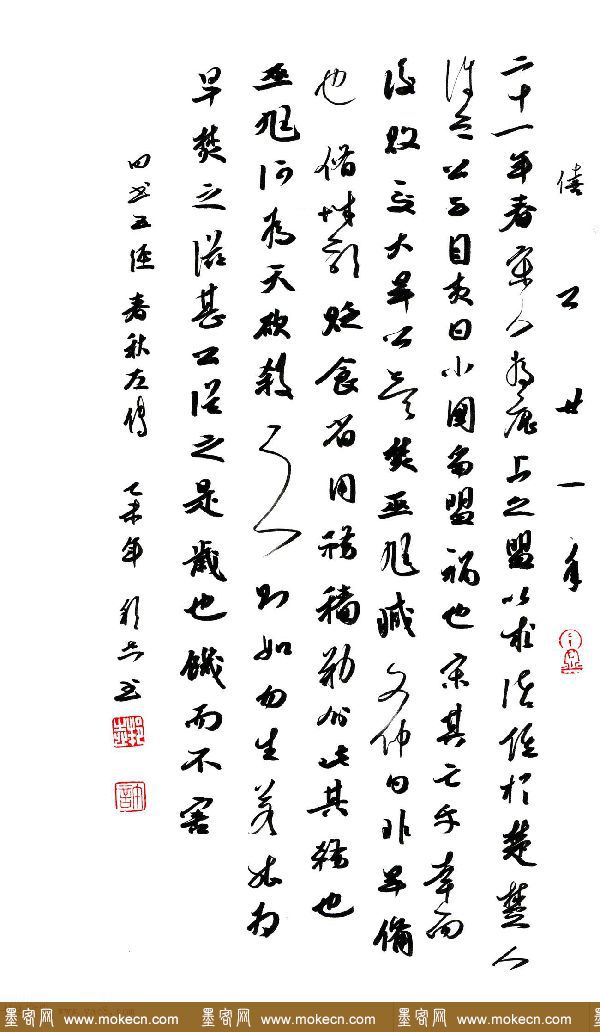 僖公廿一年
二十一年春宋人為鹿上之盟以求諸侯於楚楚人
許之公子目夷曰小國爭盟禍也宋其亡乎幸而
後敗夏大旱公欲焚巫尪臧文仲曰非旱備
也脩城郭貶食省用務穡勸分此其務也
巫尪何為天欲殺之則如勿生若能為
旱焚之滋甚公從之是歲也饑而不害
四书五經 春秋左傳 乙未年 书
墨客网 www.mokecn.com 墨客网 www.mokecn.com 墨客网 www.mokecn.com 墨客网 www.mokecn.com